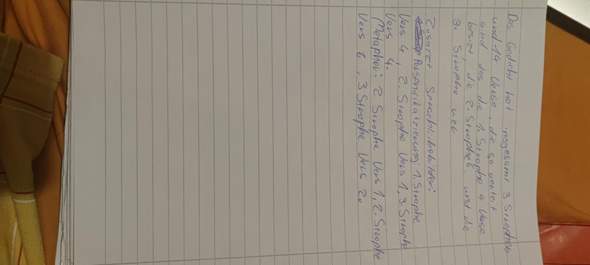 Das Gedicht hat insgesamt 3 Strophen
und 14 Verse, die so verteilt
sind das die 1. Strophe 4 Verse
die 2. Strophe und die
3. Strophe
Personifikation 1. Strophe
Vers 4, 2. Strophe Vers 1, 3. Strophe
Vers 4.
Metapher: 2 Strophe Vers 1, 2. Strophe
Vers 6, 3 Strophe Vers 2.